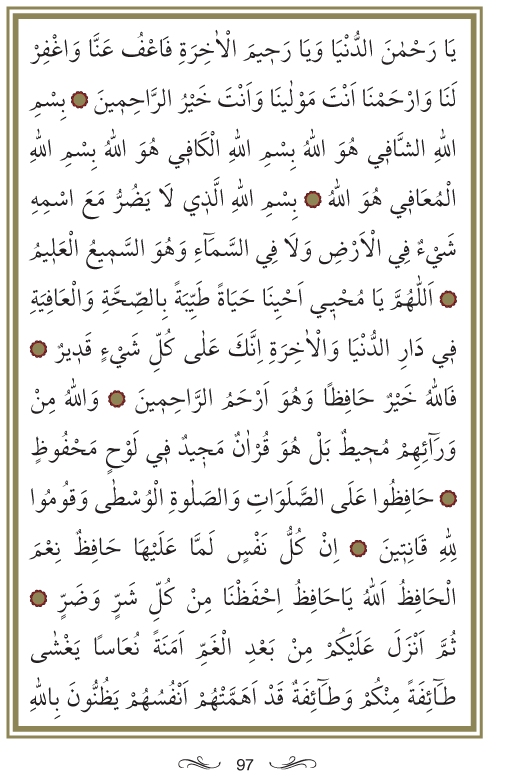 يَا رَحْمٰنَ الدُّنْيَا وَيَا رَح۪يمَ الْاٰخِرَةِ فَاعْفُ عَنَّا وَاغْفِرْ
لَنَا وَارْحَمْنَا اَنْتَ مَوْلٰينَا وَاَنْتَ خَيْرُ الرَّاحِم۪ينَ ۞ بِسْمِ
اللهِ الشَّاف۪ي هُوَ اللهُ بِسْمِ اللهِ الْكَاف۪ي هُوَ اللهُ بِسْمِ اللهِ
الْمُعَاف۪ي هُوَ اللهُ ۞ بِسْمِ اللهِ الَّذ۪ي لَا يَضُرُّ مَعَ اسْمِهِ
شَيْءٌ فِي الْاَرْضِ وَلَا فِي السَّمَٓاءِ وَهُوَ السَّم۪يعُ الْعَل۪يمُ
۞ اَللّٰهُمَّ يَا مُحْي۪ي اَحْيِنَا حَيَاةً طَيِّبَةً بِالصِّحَّةِ وَالْعَافِيَةِ
ف۪ي دَارِ الدُّنْيَا وَالْاٰخِرَةِ اِنَّكَ عَلٰى كُلِّ شَيْءٍ قَد۪يرٌ ۞
فَاللهُ خَيْرٌ حَافِظًا وَهُوَ اَرْحَمُ الرَّاحِم۪ينَ ۞ وَاللهُ مِنْ
وَرَٓائِهِمْ مُح۪يطٌ بَلْ هُوَ قُرْاٰنٌ مَج۪يدٌ ف۪ي لَوْحٍ مَحْفُوظٍ
۞ حَافِظُوا عَلَى الصَّلَوَاتِ وَالصَلٰوةِ الْوُسْطٰى وَقُومُوا
لِلّٰهِ قَانِت۪ينَ ۞ اِنْ كُلُّ نَفْسٍ لَمَّا عَلَيْهَا حَافِظٌ نِعْمَ
الْحَافِظُ اَللهُ يَاحَافِظُ اِحْفَظْنَا مِنْ كُلِّ شَرٍّ وَضَرٍّ ۞
ثُمَّ اَنْزَلَ عَلَيْكُمْ مِنْ بَعْدِ الْغَمِّ اَمَنَةً نُعَاسًا يَغْشٰى
طَٓائِفَةً مِنْكُمْ وَطَٓائِفَةٌ قَدْ اَهَمَّتْهُمْ اَنْفُسُهُمْ يَظُنُّونَ بِاللهِ
97